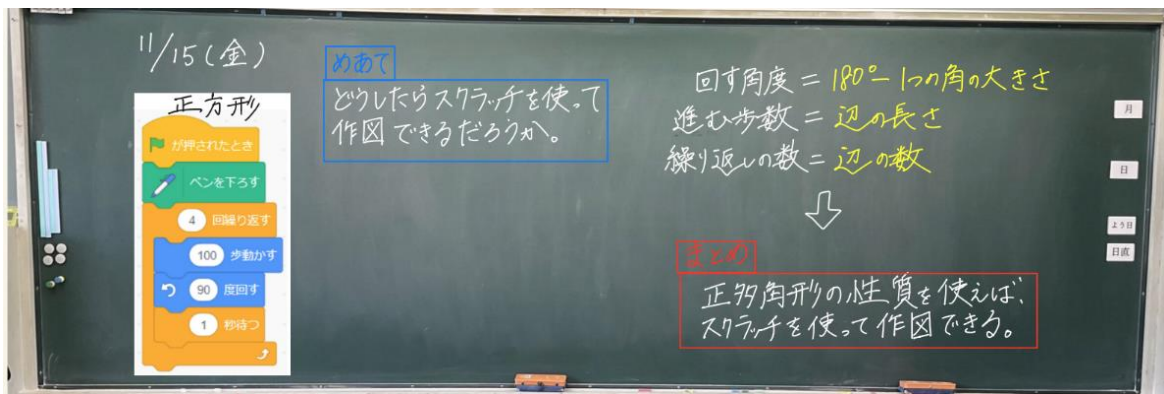 11/15(金)
正方形
が押されたとき
ペンを下ろす
4 回繰り返す
100 歩動かす
90 度回す
1 秒待つ
めあて
どうしたらスクラッチを使って
作図できるだろうか。
回す角度=180°-1つの角の大きさ
進む歩数=辺の長さ
繰り返しの数=辺の数
まとめ
正多角形の性質を使えば、
スクラッチを使って作図できる。
月
日
よう日
日直